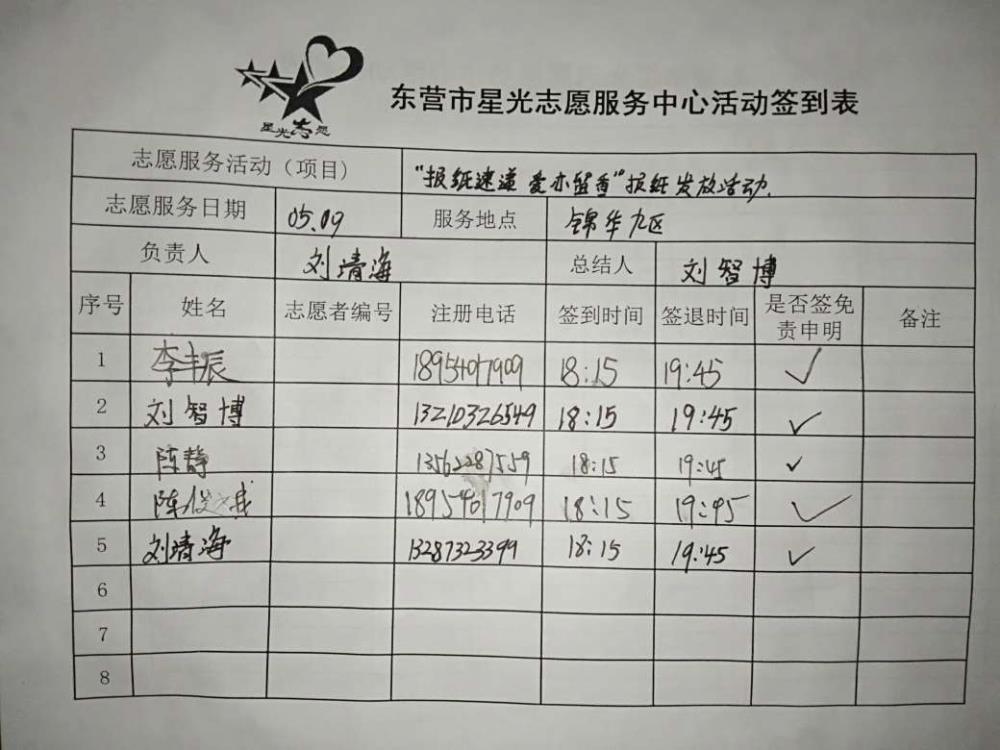 星光志愿
东营市星光志愿服务中心活动签到表
志愿服务活动（项目） "报纸速递 爱亦留香"报纸发放活动.
志愿服务日期 05.09 服务地点 锦华九区
负责人 刘清海 总结人 刘智博
序号 姓名 志愿者编号 注册电话 签到时间 签退时间 是否签免责申明 备注
1 李丰辰 18954017909 18:15 19:45 ✓
2 刘智博 13210326549 18:15 19:45 ✓
3 陈静 13562287559 18:15 19:45 ✓
4 陈俊 18954617909 18:15 19:45 ✓
5 刘清海 13287323399 18:15 19:45 ✓
6
7
8